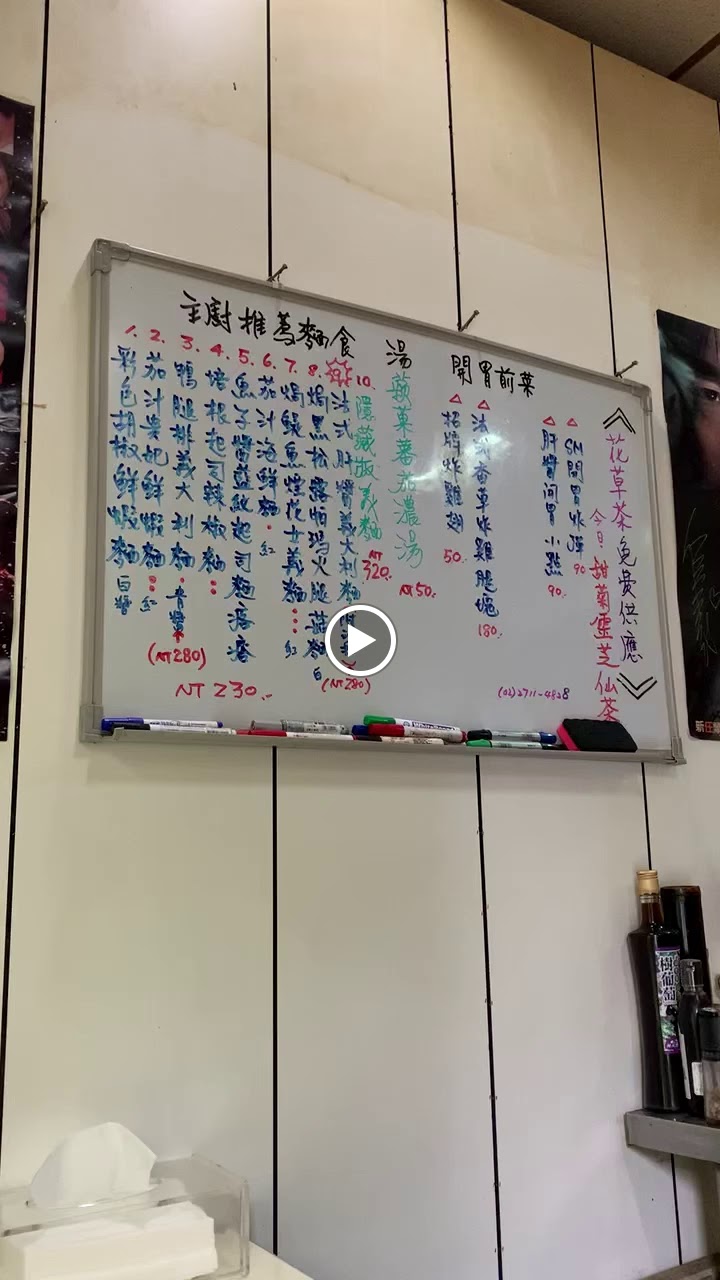 主廚推薦麵食
1.
彩色胡椒鮮蝦麵
白醬
2.
茄汁貴妃鮮蝦麵
紅
3.
鴨腿排義大利麵
青醬
(NT 280)
4.
培根起司辣椒麵
5.
魚子醬藍紋起司麵
6.
茄汁海鮮麵
紅
7.
焗鯷魚煙花女義麵
紅
8.
焗黑松露帕瑪火腿
白
法式肝醬義大利麵
(NT 280)
10.
隱藏版義麵
NT
320.
NT 230.-
湯
蔬菜蕃茄濃湯
NT 50.
開胃前菜
△
招牌炸雞翅
50.
△
法式香草炸雞腿塊
180.
△
肝醬開胃小點
90.
△
SM開胃炸彈
90
花草茶免費供應
今日:甜菊靈芝仙茶
(02)2711-4828
樹葡萄